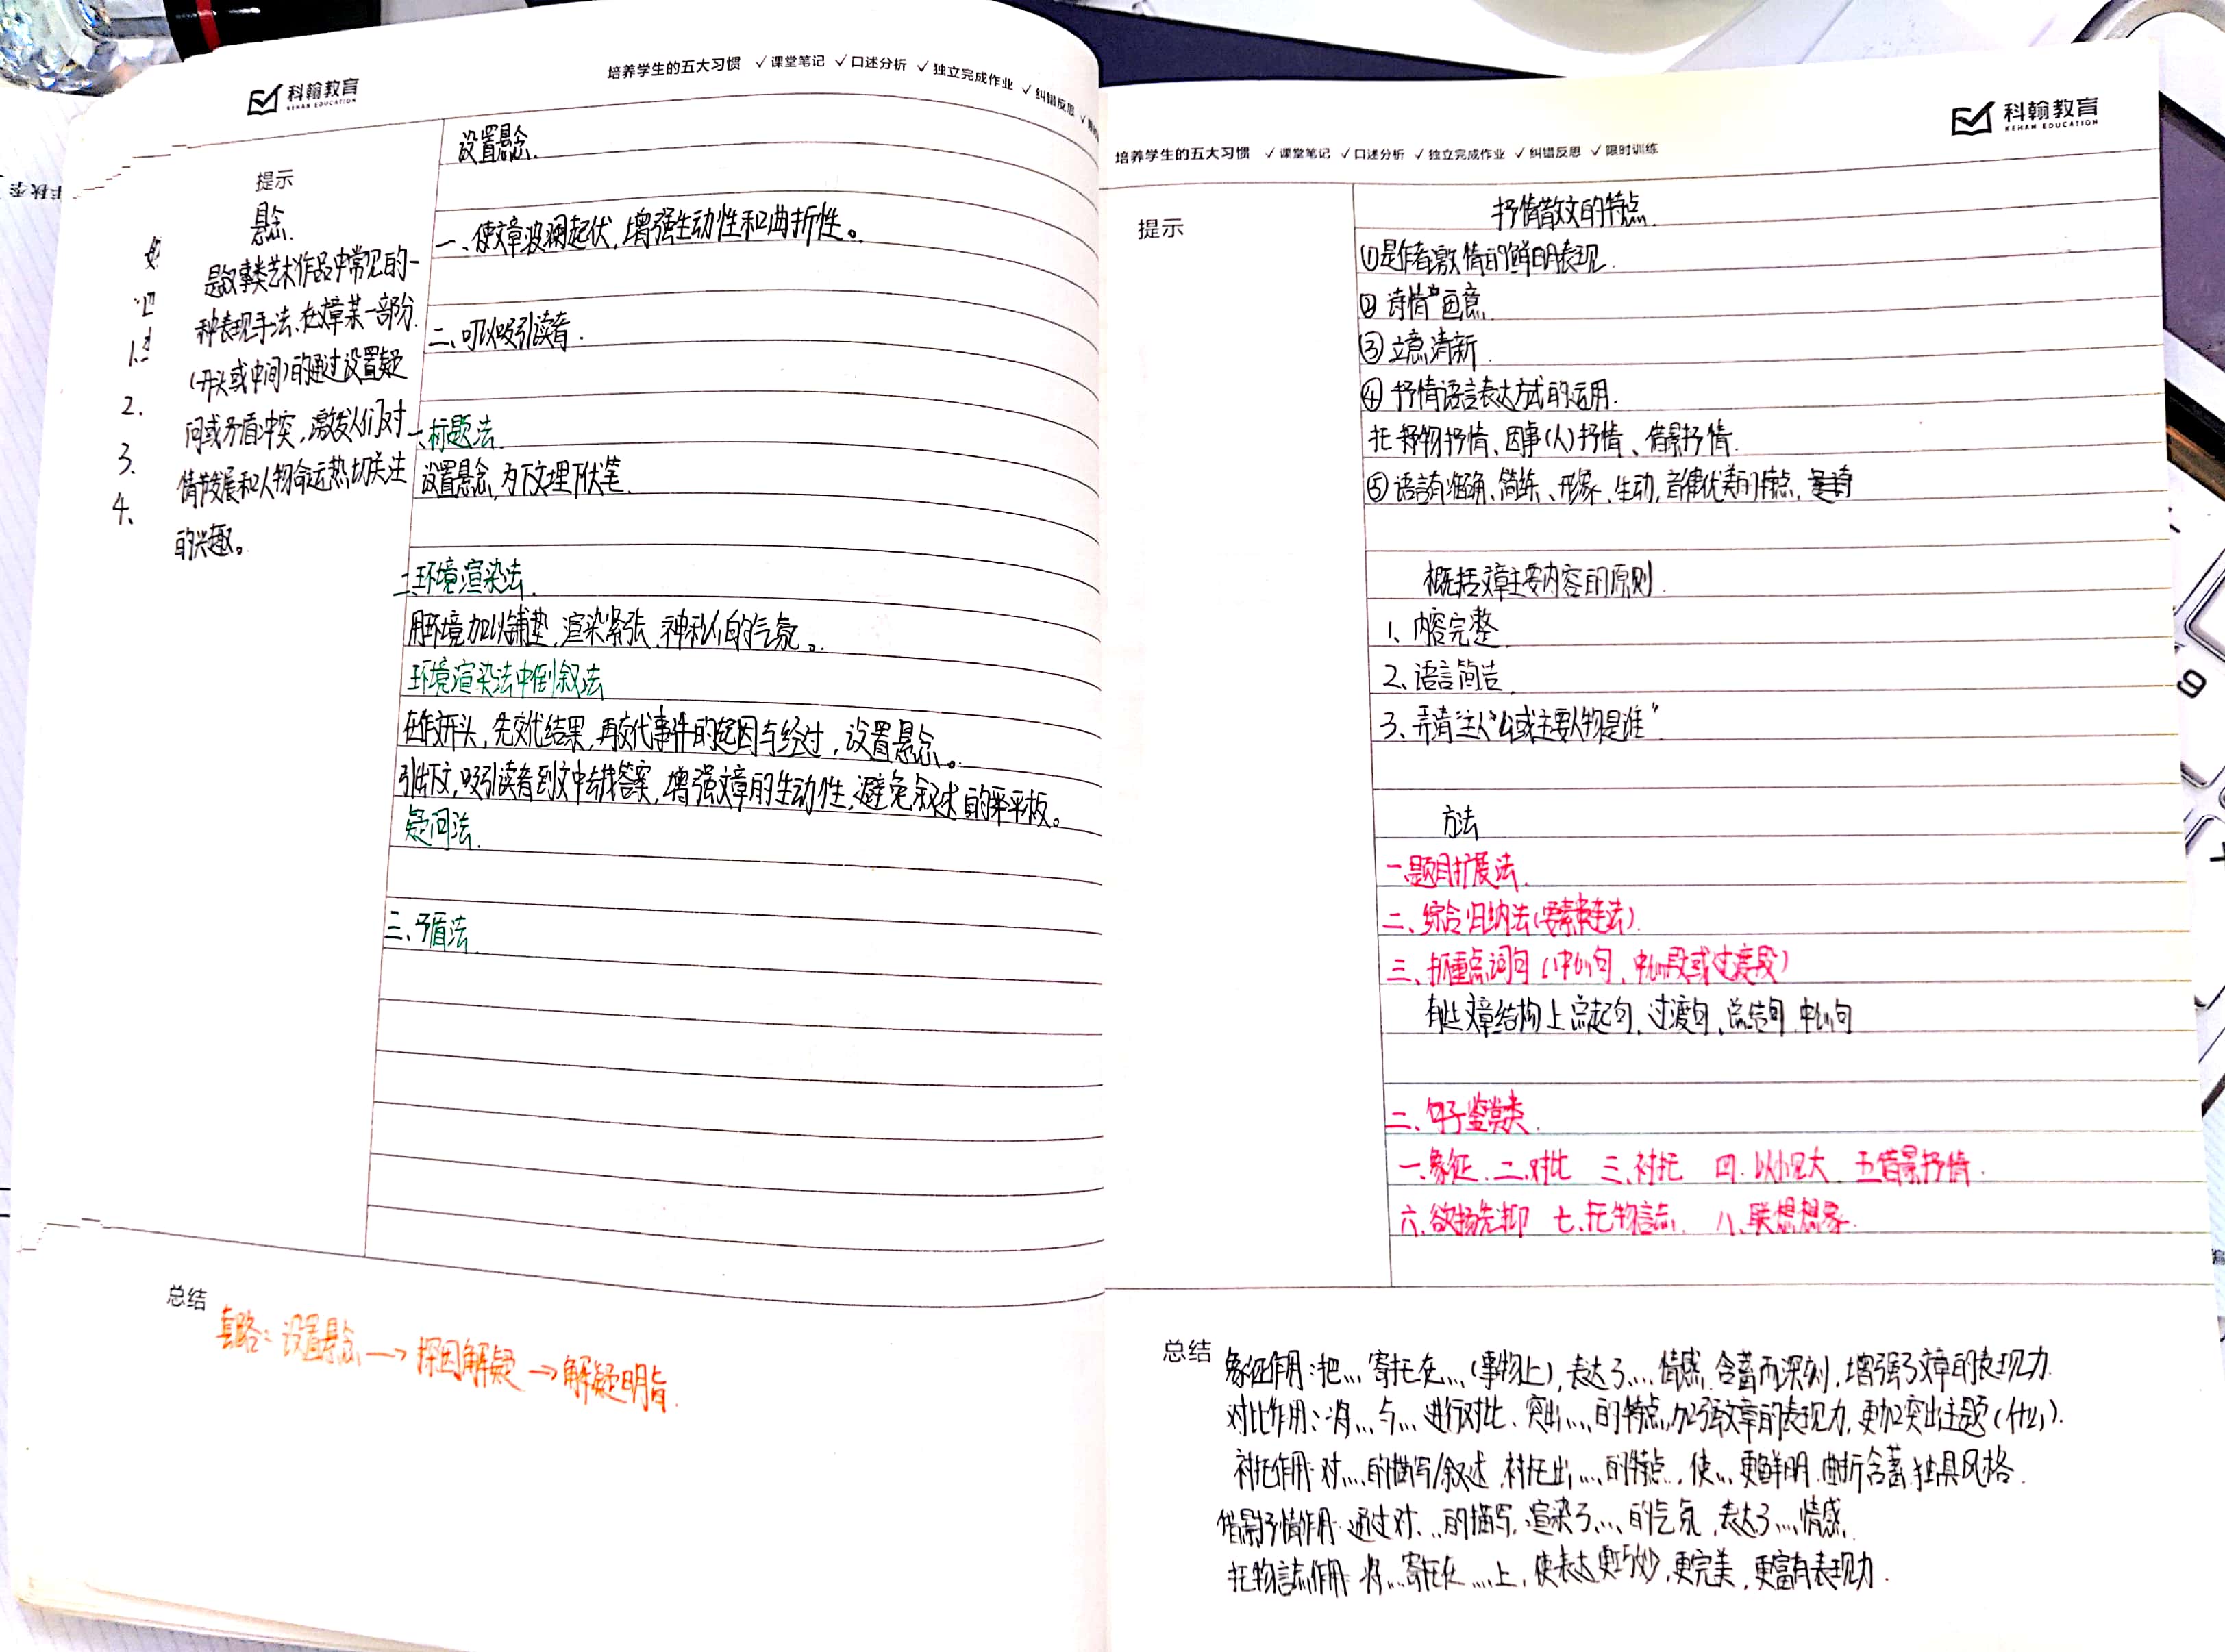 科翰教育
KEHAN EDUCATION
培养学生的五大习惯 ✓课堂笔记 ✓口述分析 ✓独立完成作业 ✓纠错反思 ✓
提示
悬念.
是故事类艺术作品中常见的一
种表现手法、在文章某一部分.
(开头或中间)的通过设置疑
问或矛盾冲突,激发人们对
情节发展和人物命运热切关注
的兴趣。
2.
3.
4、
设置悬念.
一、使文章波澜起伏,增强生动性和曲折性。
二、可以吸引读者.
一、标题法.
设置悬念,为下文埋下伏笔.
二、环境渲染法.
用环境加以铺垫,渲染紧张、神秘的气氛。
环境渲染法中倒叙法
在作文开头,先交代结果,再交代事件的起因与经过,设置悬念。
引出下文,吸引读者到文中去找答案,增强文章的生动性,避免叙述的平平板。
疑问法.
三、矛盾法.
总结
套路:设置悬念→探因解疑→解疑明旨.
科翰教育
KEHAN EDUCATION
培养学生的五大习惯 ✓课堂笔记 ✓口述分析 ✓独立完成作业 ✓纠错反思 ✓限时训练
提示
抒情散文的特点.
①是作者激情的鲜明表现.
② 诗情画意
③ 立意清新.
④ 抒情语言表达方式的运用.
托物抒情、因事(人)抒情、借景抒情.
⑤ 语言有准确、简练、形象、生动,音律优美的特点,
概括文章主要内容的原则.
1、内容完整
2、语言简洁.
3、弄清主人公或主要人物是谁"
方法
一、题目扩展法.
二、综合归纳法(要素串连法).
三、抓重点词句(中心句、中心段或过渡段)
文章结构上总起句,过渡句,总结句 中心句
二、句子鉴赏类.
一、象征 二、对比 三、衬托 四、以小见大 五借景抒情.
六、欲扬先抑 七、托物言志. 八、联想想象.
总结
象征作用:把…寄托在…(事物上),表达了…情感,含蓄而深刻,增强了文章的表现力.
对比作用:将…与…进行对比、突出…的特点,加强文章的表现力,更加突出主题(什么).
衬托作用:对…的描写/叙述,衬托出…的特点,使…更鲜明 曲折含蓄 独具风格.
借景抒情作用:通过对…的描写,渲染了…的气氛,表达了…情感.
托物言志作用:将…寄托在…上,使表达更巧妙,更完美,更富有表现力.